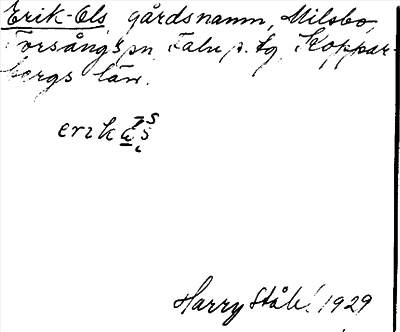 Erik-Els, gårdsnamn, Milsbo,
Torsångs sn, Falu p. tg, Koppar-
bergs län.
erik
Harry Ståhl 1929